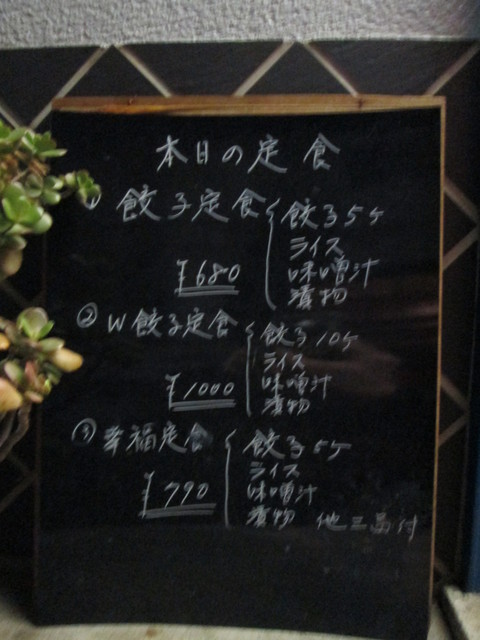 本日の定食
① 餃子定食 餃子5ケ
ライス
¥680 味噌汁
漬物
② W餃子定食 餃子10ケ
ライス
¥1000 味噌汁
漬物
③ 幸福定食 餃子5ケ
ライス
¥790 味噌汁
漬物 他三品付